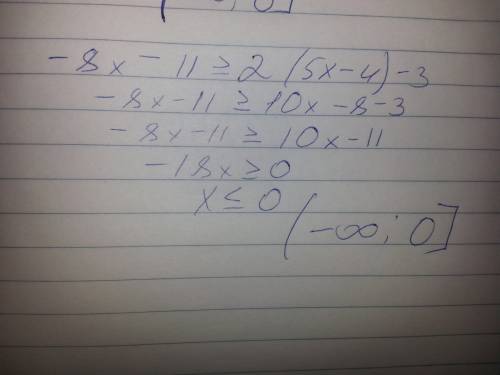 ; 0]
-8x - 11 ≥ 2 (5x-4)-3
-8x-11 ≥ 10x-8-3
-8x-11 ≥ 10x-11
-18x ≥ 0
x ≤ 0
(-∞; 0]